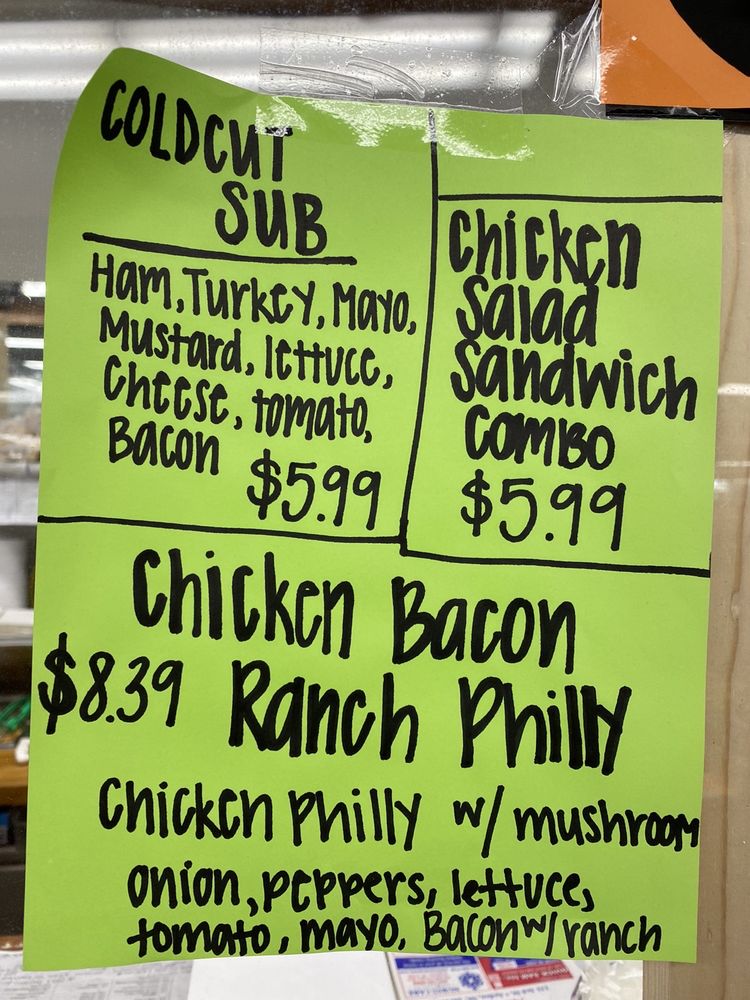 COLDCUT
SUB
Ham, Turkey, Mayo,
Mustard, lettuce,
Cheese, tomato,
Bacon $5.99
Chicken
Salad
Sandwich
COMBO
$5.99
Chicken Bacon
$8.39 Ranch Philly
Chicken Philly w/ mushroom
onion, peppers, lettuce,
tomato, mayo, Bacon w/ ranch